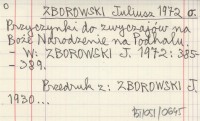 ZBOROWSKI Juliusz 1972 o.
Przyczynki do zwyczajów na
Boże Narodzenie na Podhalu.
- W: ZBOROWSKI J. 1972: 385-
- 389.
Przedruk z: ZBOROWSKI J.
1930...